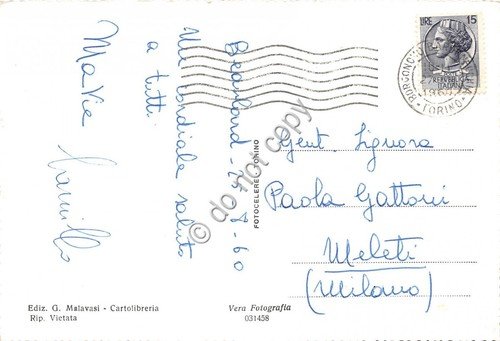 Beaulard - 25-8-60
Un cordiale saluto
a tutti
Ma Vie Camillo
Gent. Signora
Paola Gattoni
Meleti
(Milano)
LIRE 15
TORINO
FOTOCELERE TORINO
Ediz. G. Malavasi - Cartolibreria
Rip. Vietata
Vera Fotografia
031458
© do not copy